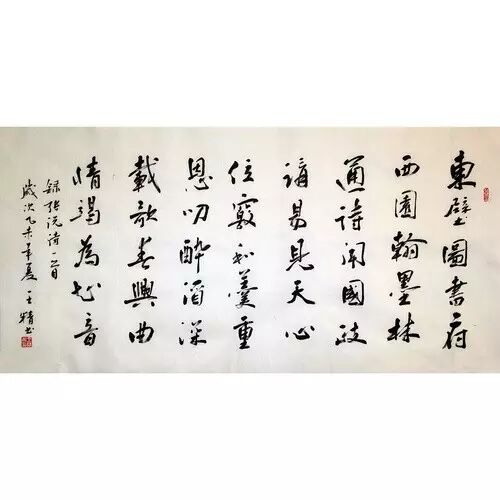 東壁圖書府
西園翰墨林
通詩聞國政
講易見天心
位竊和羹重
恩叨醉酒深
載歌春興曲
情竭為知音
録張説詩一首
歲次乙未年夏 王精书